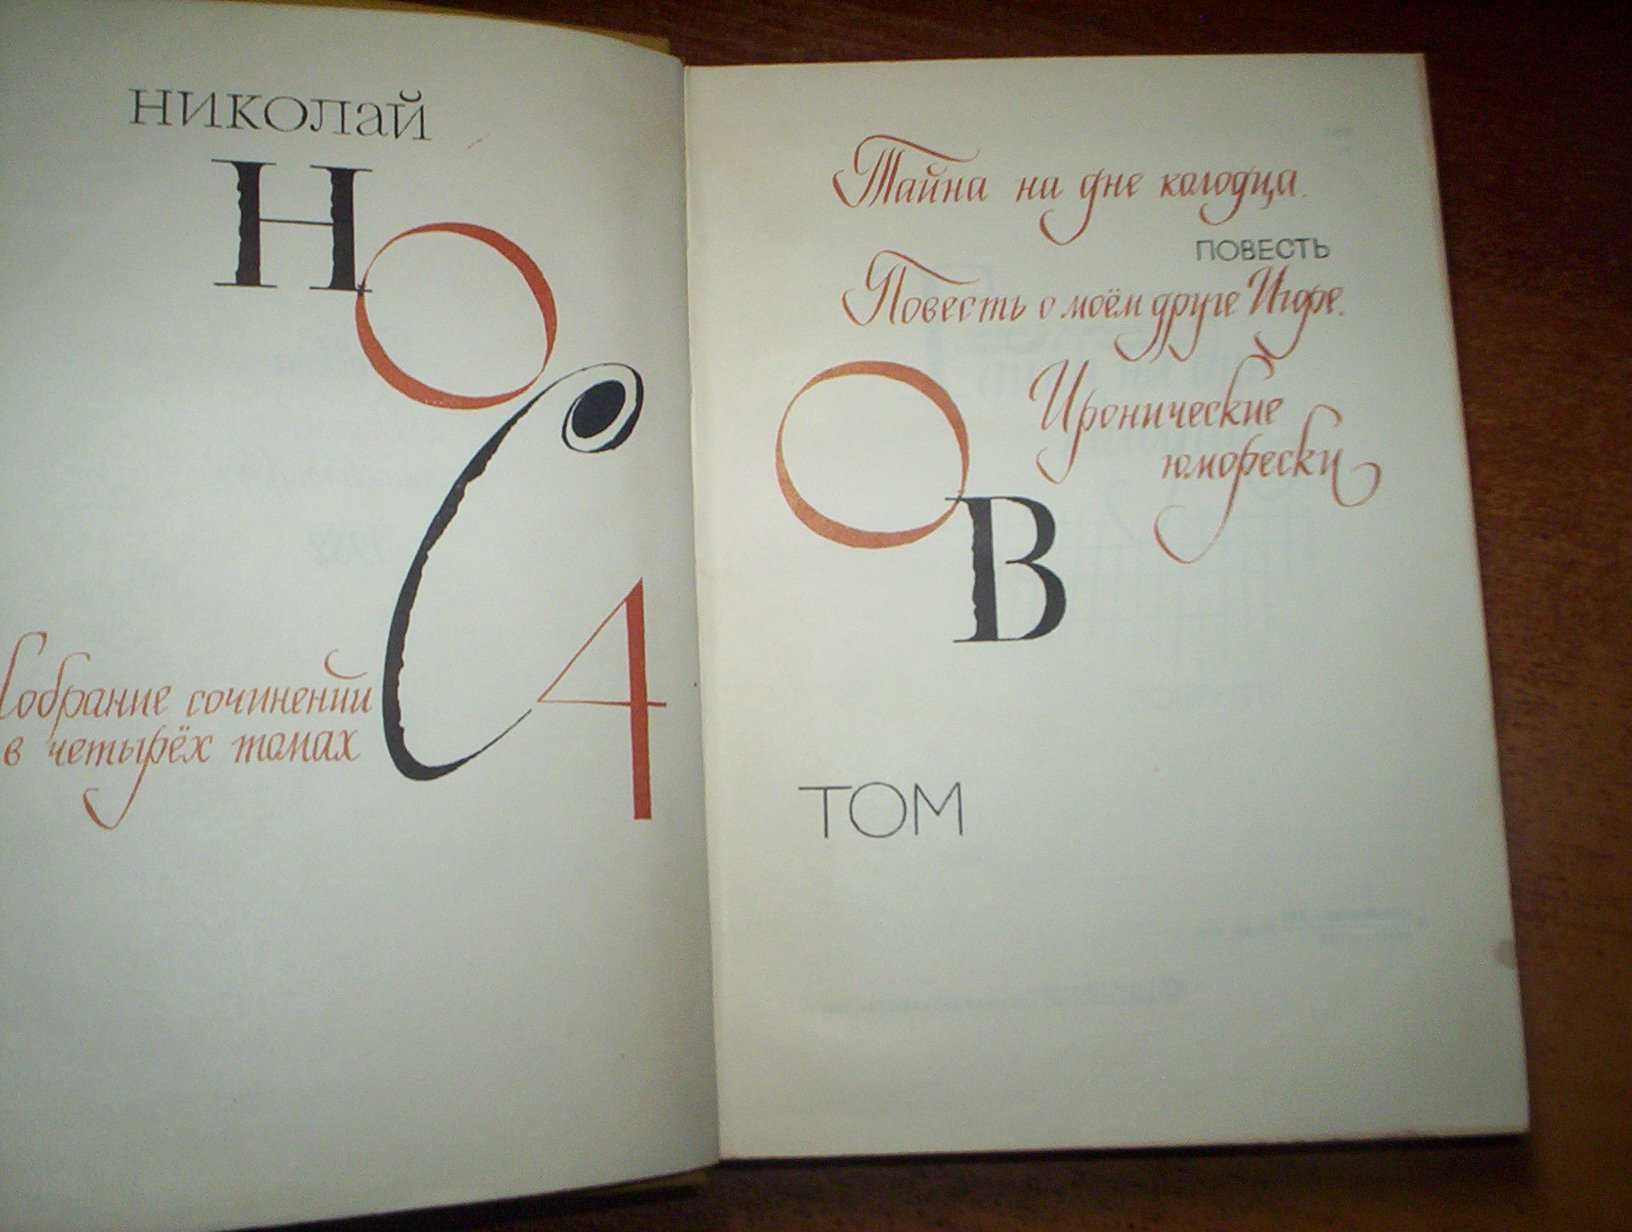 НИКОЛАЙ
НОСОВ
Собрание сочинений
в четырёх томах
4
ТОМ
Тайна на дне колодца.
ПОВЕСТЬ
Повесть о моём друге Игоре.
Иронические
юморески